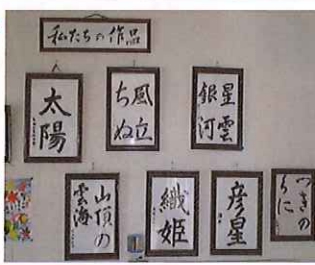 私たちの作品
太陽
風立
ちぬ
星雲
銀河
山頂の
雲海
織姫
彦星
つきの